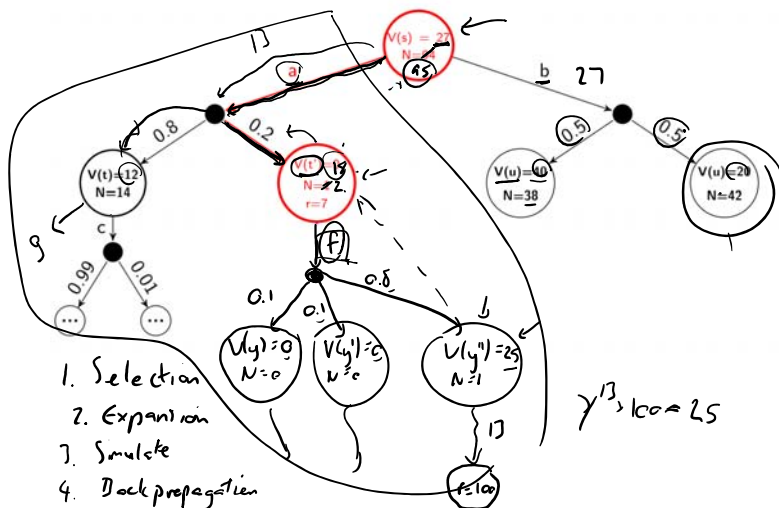 13
V(s) = 27
95
a
b 27
0.8
0.2
0.5
0.5
V(t)=12
N=14
18
2
r=7
V(u)=40
N=38
V(u)=20
N=42
9
c
f
0.99
0.01
...
...
0.1
0.1
0.8
V(y)=0
N=0
V(y')=0
N=0
V(y'')=25
N=1
13
r=100
1. Selection
2. Expantion
3. Simulate
4. Backpropagation
γ^13 · 100 = 25